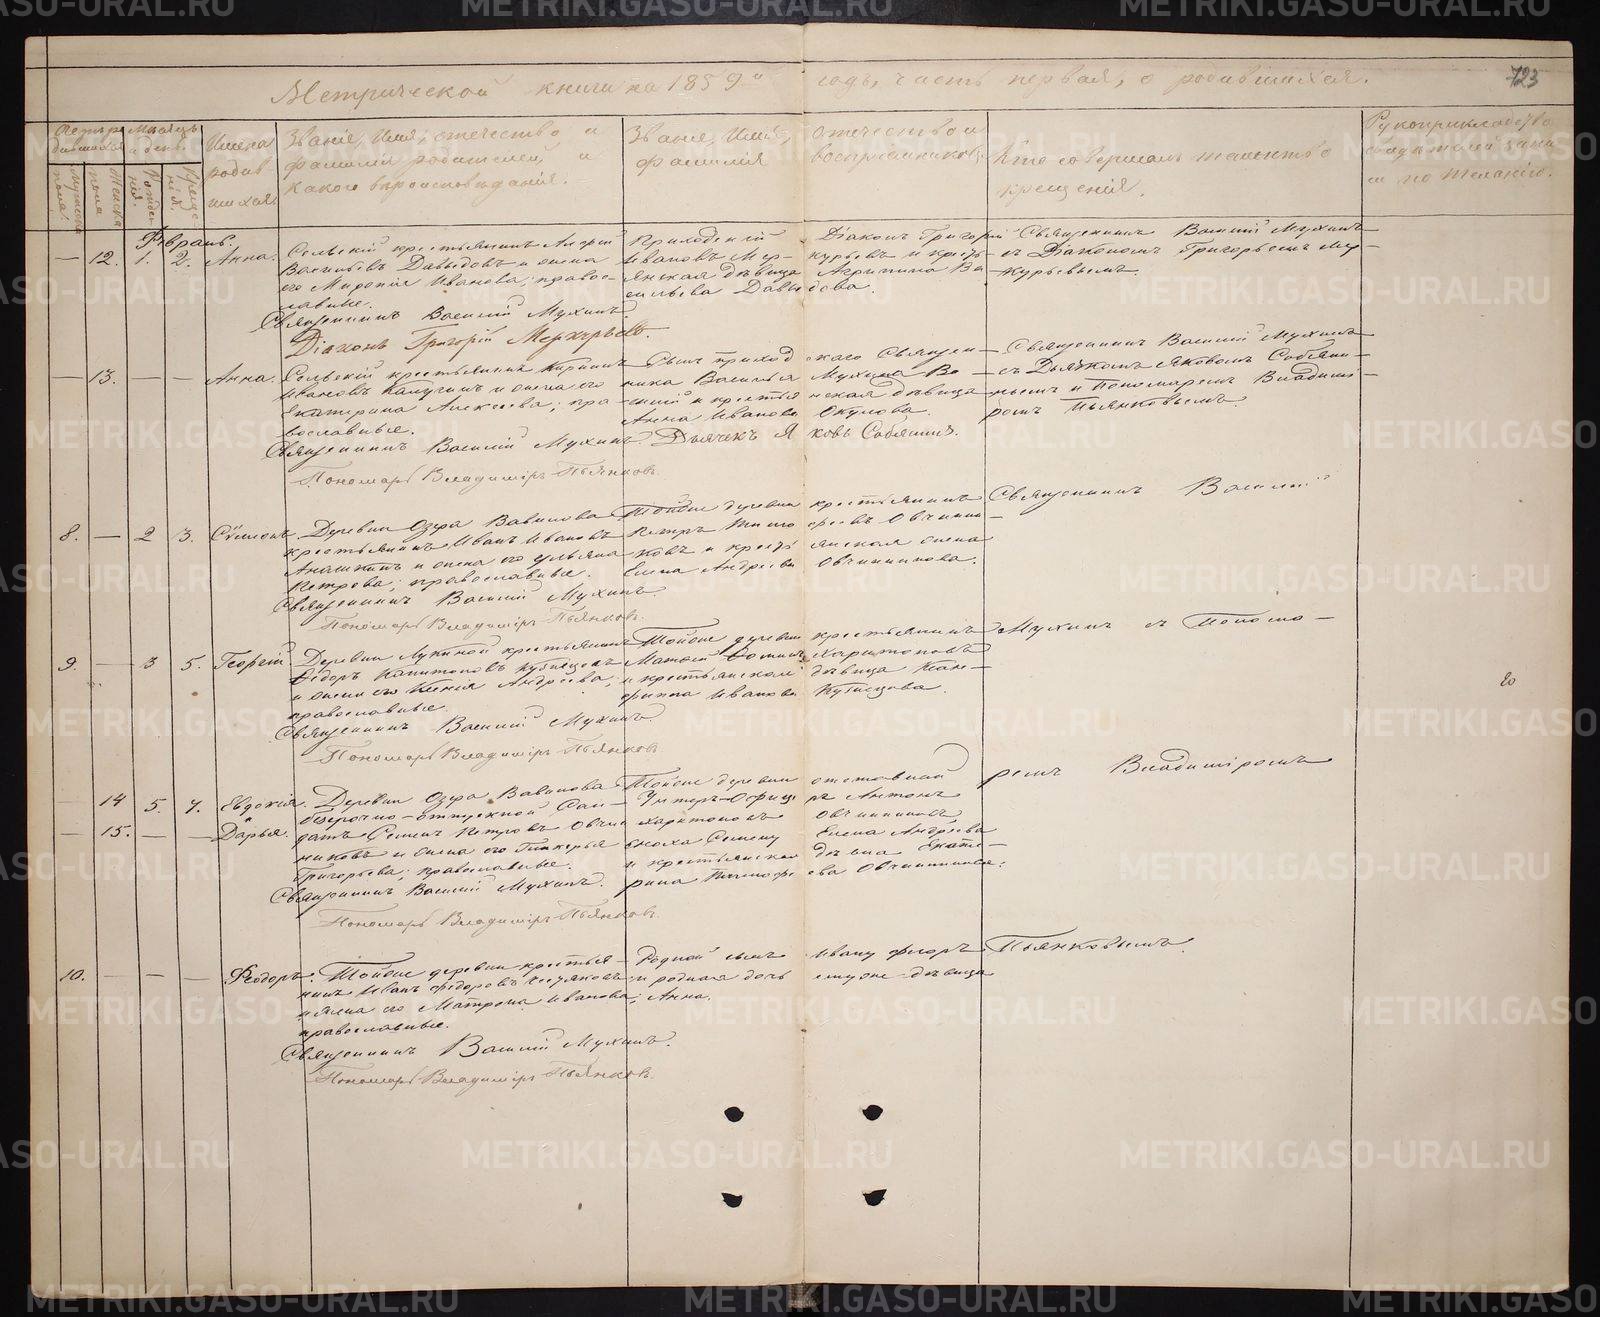 Метрической книги на 1859й годъ, часть первая, о родившихся.
123
Мужеска пола.
Женска пола
Месяцъ и день.
Рожденія.
Крещенія.
Имена родившихся
Званіе, имя, отечество и фамилія родителей, и какого вѣроисповѣданія.
Званіе, имя, отечество и фамилія воспріемниковъ.
Кто совершалъ таинство крещенія.
Рукоприкладство свидѣтелей записи по желанію.
Февраль.
12. 1. 2. Анна.
Сельскій крестьянинъ Андрей
Васильевъ Давыдовъ и жена
его Миропія Иванова; православные.
Священникъ Василій Мухинъ
Діаконъ Григорій Меркурьевъ
Приходскій Діаконъ Григорій
Ивановъ Меркурьевъ и крестьянская дѣвица Агрипина Васильева Давыдова.
Священникъ Василій Мухинъ
съ Діакономъ Григорьемъ Меркурьевымъ.
13. Анна.
Сельскій крестьянинъ
Ивановъ и жена его
Екатерина Алексеева; православные.
Священникъ Василій Мухинъ.
Дьячекъ Яковъ Собянинъ.
Пономарь Владимiръ Пьянковъ.
Сынъ приходскаго Священника Василья Мухина
и крестьянская дѣвица
Анна Иванова Окулова.
Священникъ Василій Мухинъ
съ Дьячкомъ Яковомъ Собянинымъ и Пономаремъ Владиміромъ Пьянковымъ.
8. 2 3. Сѵмеонъ.
Деревни Озера Вавилова
крестьянинъ Иванъ Ивановъ
и жена его Ульяна
Петрова; православные.
Священникъ Василій Мухинъ.
Пономарь Владимiръ Пьянковъ.
Тойже деревни крестьянинъ
Петръ Овчинниковъ и крестьянская жена
Елена Андреева Овчинникова.
Священникъ Василій
9. 3 5. Георгій
Деревни Лукиной крестьянинъ
Ѳедоръ Капитоновъ Кузнецовъ
и жена его Ксенія Андреева;
православные.
Священникъ Василій Мухинъ.
Пономарь Владимiръ Пьянковъ
Тойже деревни крестьянинъ
Матвей Харитоновъ
и крестьянская дѣвица
Иванова Кузнецова.
Мухинъ съ Пономаремъ Владиміромъ
14 5. 7. Евдокія.
15. Дарья.
Деревни Озера Вавилова
безсрочно-отпускной Солдатъ Семенъ Петровъ Овчинниковъ и жена его Гликерья
Григорьева; православные.
Священникъ Василій Мухинъ.
Пономарь Владимiръ Пьянковъ.
Тойже деревни отставной
Унтеръ-Офицеръ Антонъ
Харитоновъ Овчинниковъ,
сноха Семену Елена Андреева
и крестьянская дѣвица Екатерина Овчинникова.
10. Ѳеодоръ.
Тойже деревни крестьянинъ Иванъ Ѳедоровъ
и жена его Матрона Иванова;
православные.
Священникъ Василій Мухинъ.
Пономарь Владимiръ Пьянковъ.
Родной сынъ Ивану Ѳеодоръ
и родная дочь ему же дѣвица
Анна.
Пьянковымъ.
METRIKI.GASO-URAL.RU